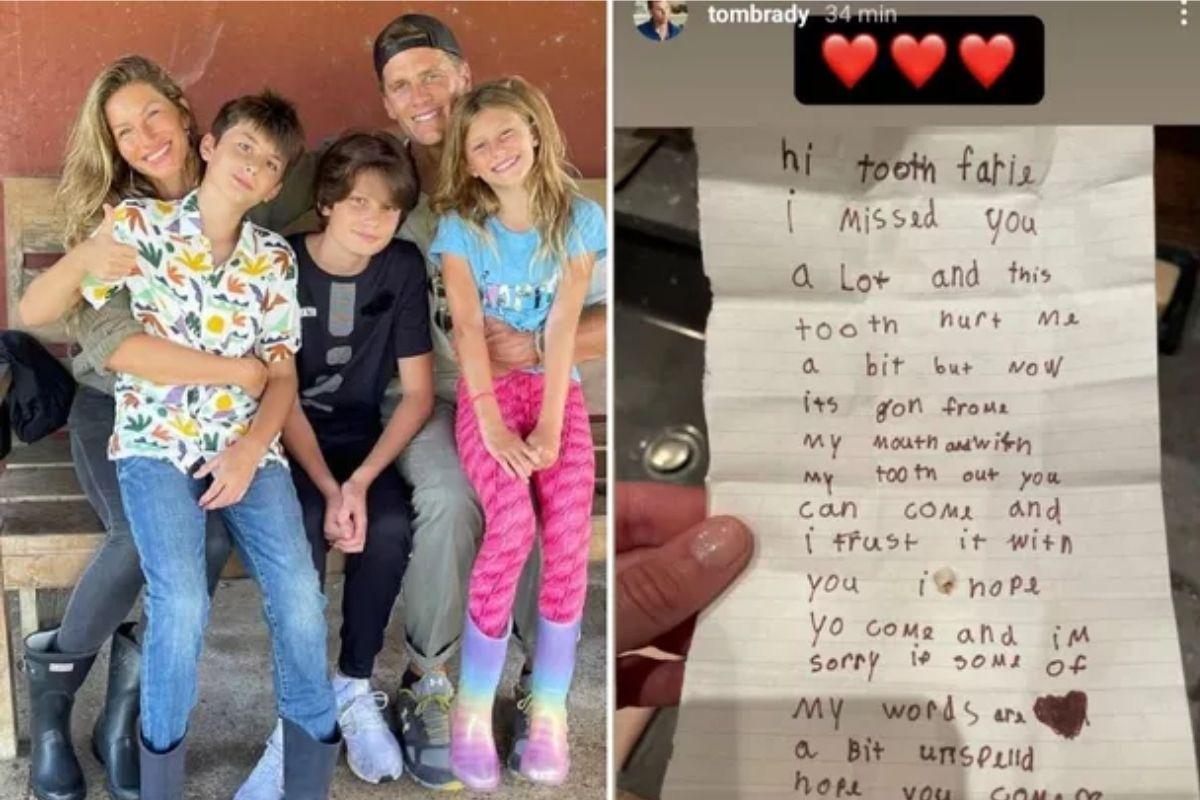 tombrady 34 min
hi tooth farie
i missed you
a Lot and this
tooth hurt me
a bit but now
its gon frome
my mouth and with
my tooth out you
can come and
i trust it with
you i hope
yo come and im
sorry if some of
my words are
a Bit unspelld
hope you